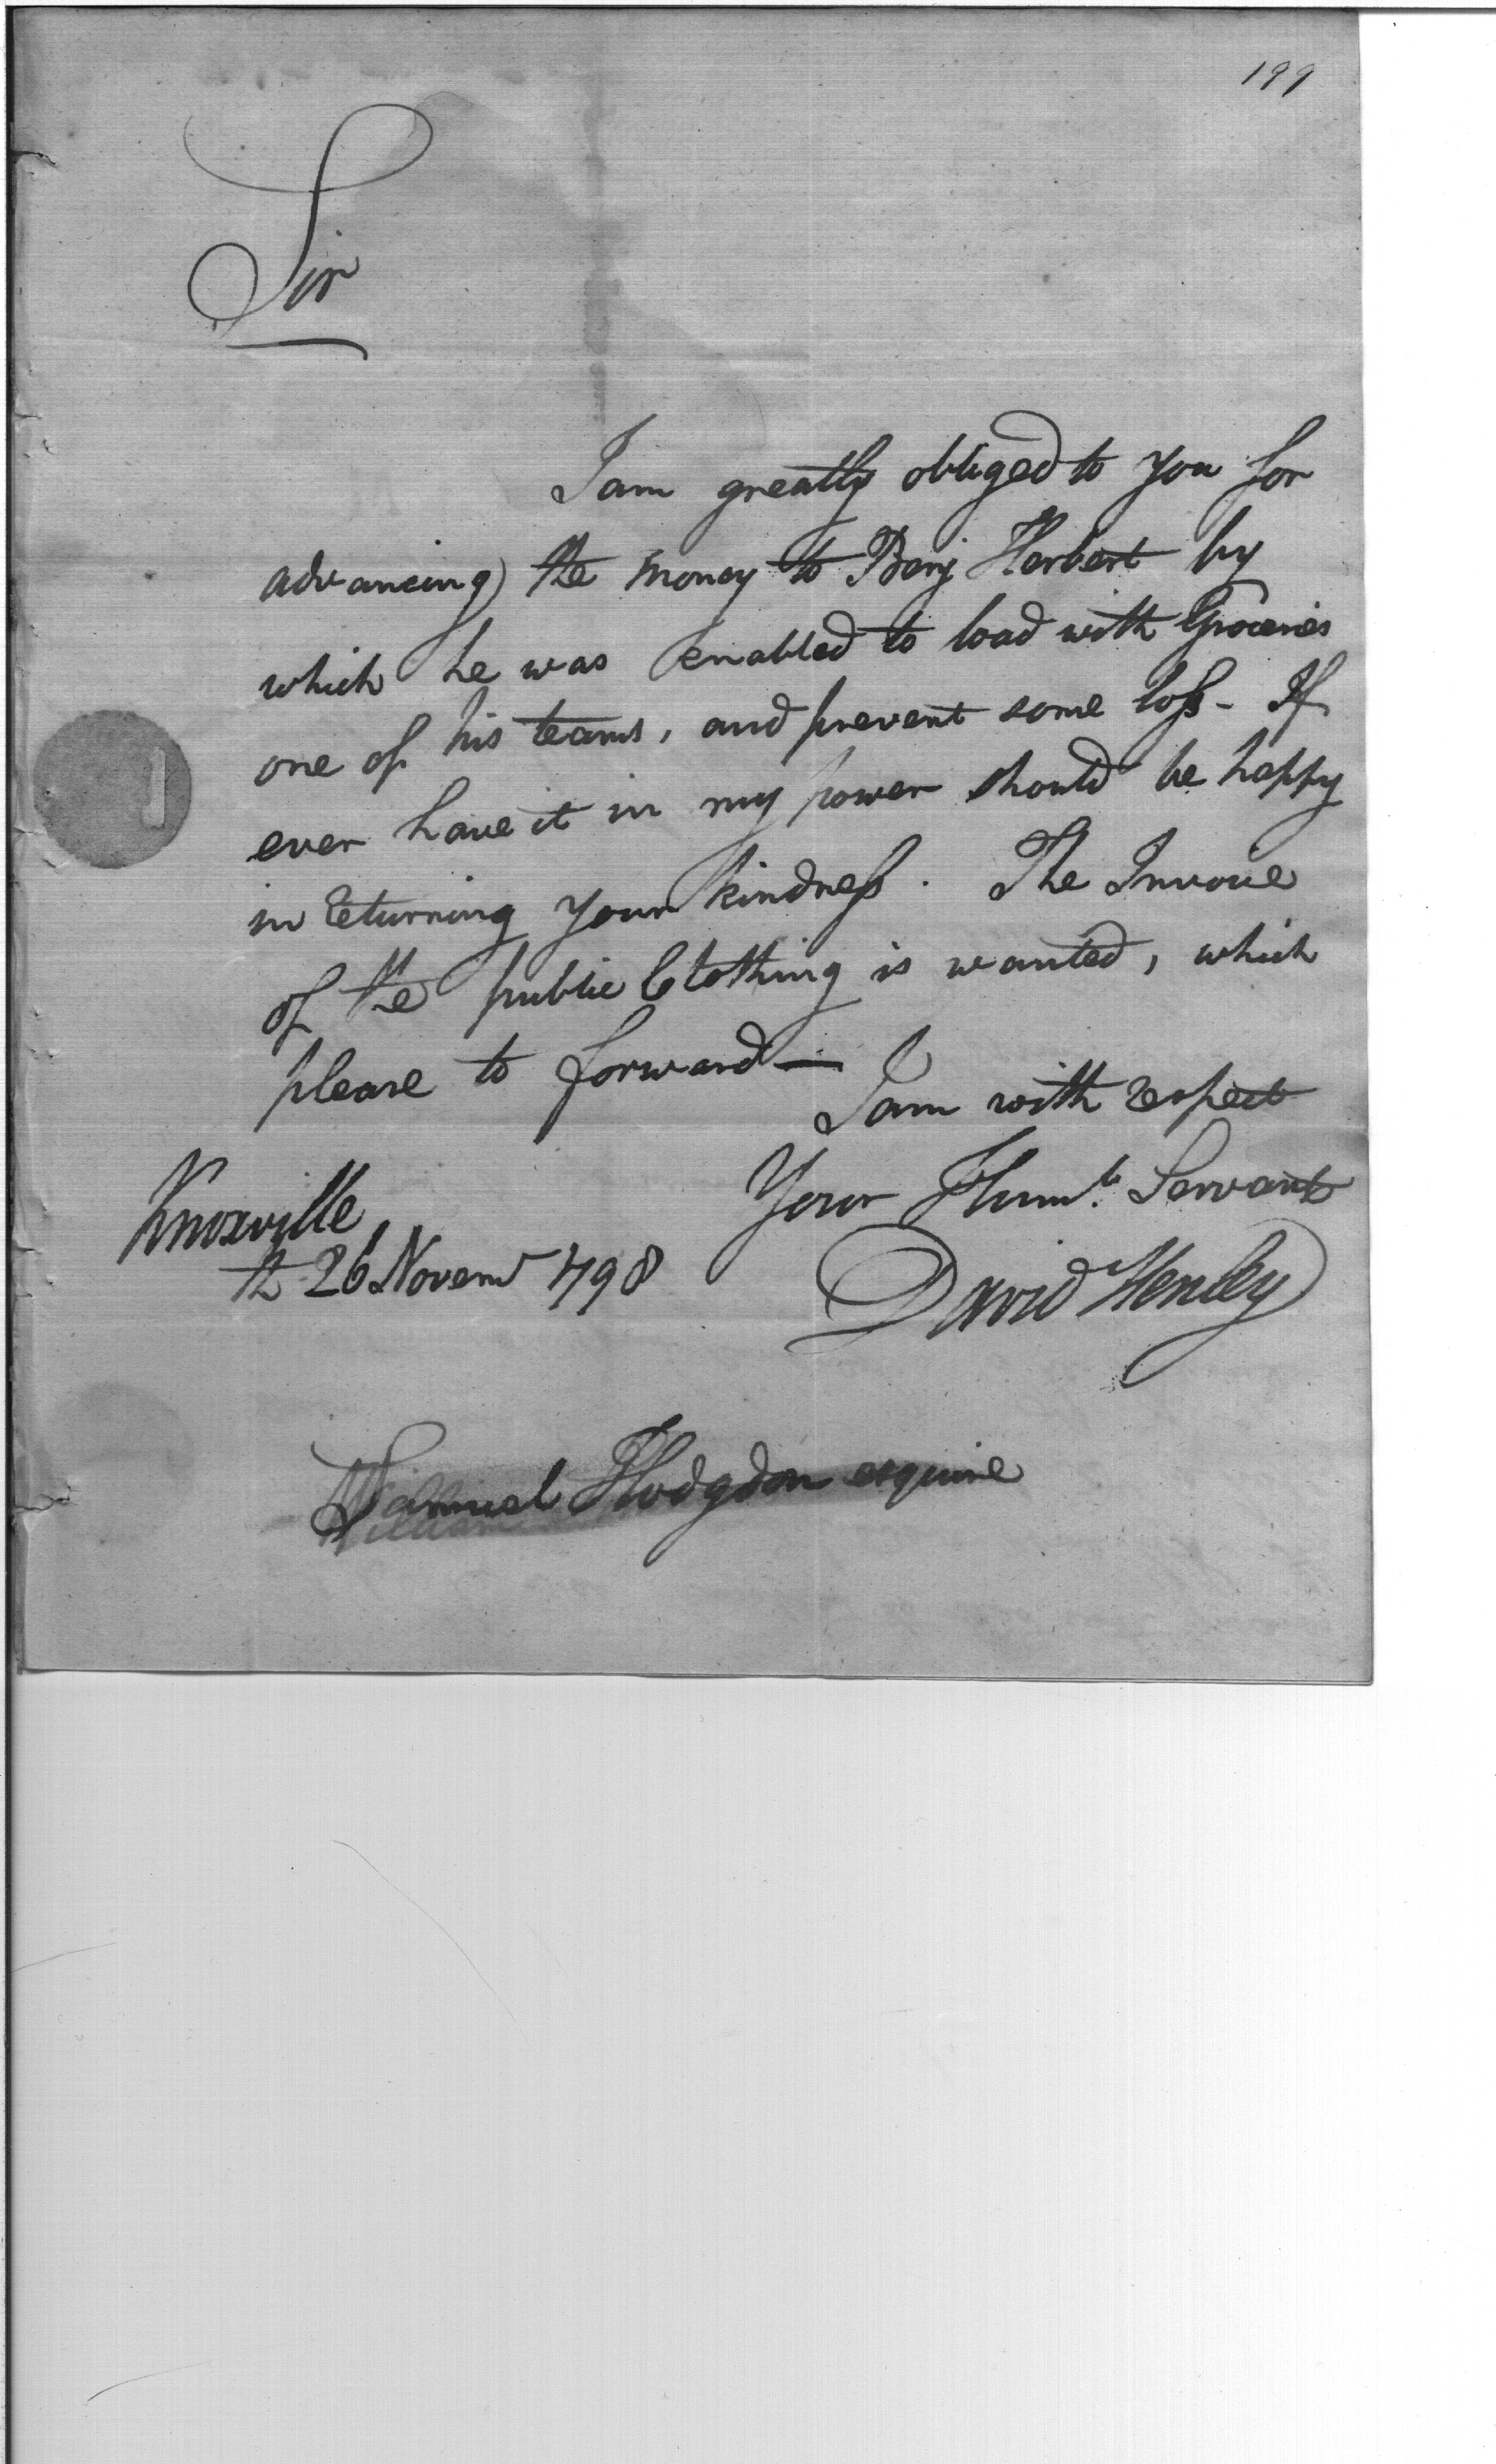 199
Sir
I am greatly obliged to you for
advancing the money to Benj Herbert by
which he was enabled to load with Groceries
one of his teams, and prevent some loss - If
ever have it in my power should be happy
in returning your kindness. The Invoice
of the public Clothing is wanted, which
please to forward —
I am with respect
Your Humle. Servant
David Henley
Knoxville
26 Novemr 1798
Samuel Hodgdon esquire